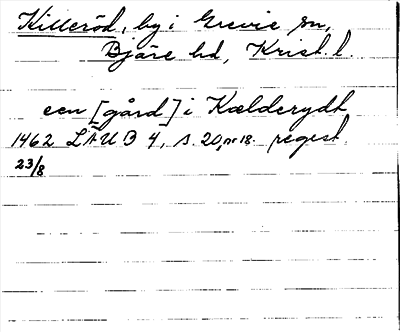 Killeröd, by i Grevie sn,
Bjäre hd, Krist. l.
een [gård] i Kælderydh
1462 LÄUB 4, s. 20, nr 18. regest.
23/8